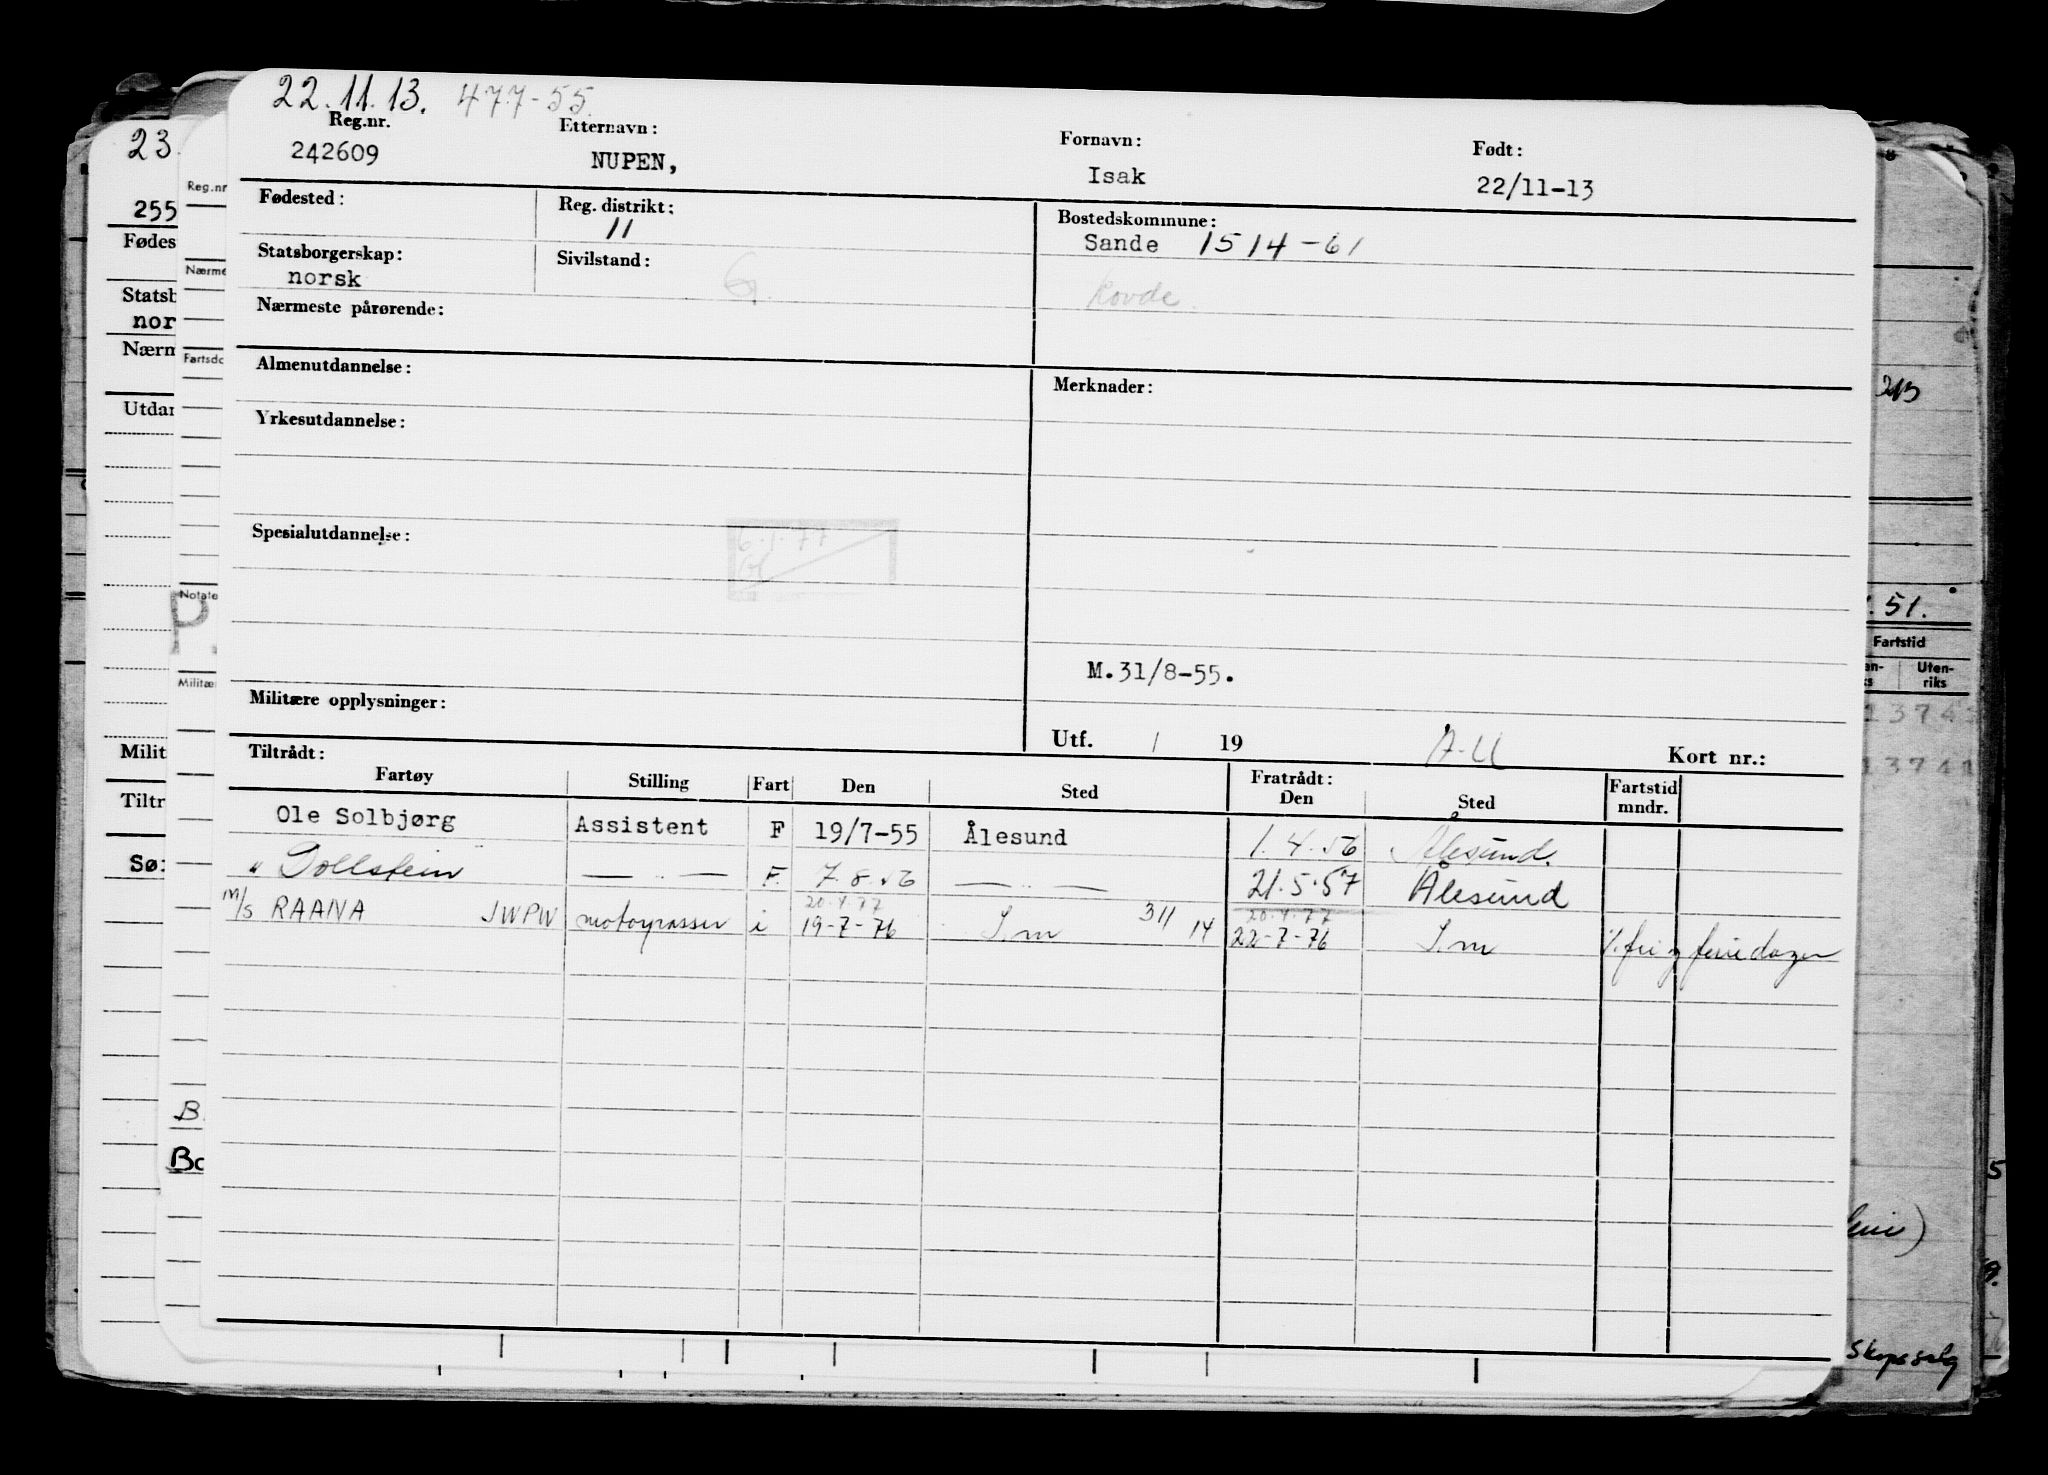 22.11.13. 477-55.
Reg.nr. Etternavn: Fornavn: Født:
242609 NUPEN, Isak 22/11-13
Fødested: Reg. distrikt: Bostedskommune:
11 Sande 1514-61
Statsborgerskap: Sivilstand:
norsk G. Rovde.
Nærmeste pårørende:
Almenutdannelse: Merknader:
Yrkesutdannelse:
Spesialutdannelse:
6.1.77
M.31/8-55.
Militære opplysninger:
Utf. / 19 A-U Kort nr.:
Tiltrådt: Fratrådt:
Fartøy Stilling Fart Den Sted Den Sted Fartstid mndr.
Ole Solbjørg Assistent F 19/7-55 Ålesund 1.4.56 Ålesund.
" Dollstein — " — F. 7.8.56 — " — 21.5.57 Ålesund
20.4.77 20.4.77
M/S RAANA JWPW motorpasser i 19-7-76 S.m 311 14 22-7-76 S.m %.fri og feriedager
23.
Reg.nr
255
Fødes
Nærme
Statsb
nor
Nærm
Fartsdo
Utdan
Notate
P
Militær
Milit
Tiltr
Sø:
B.
Bo
213
.51.
Fartstid
an-ks Uten-riks
13741
13741
5
9.
Skipssalg